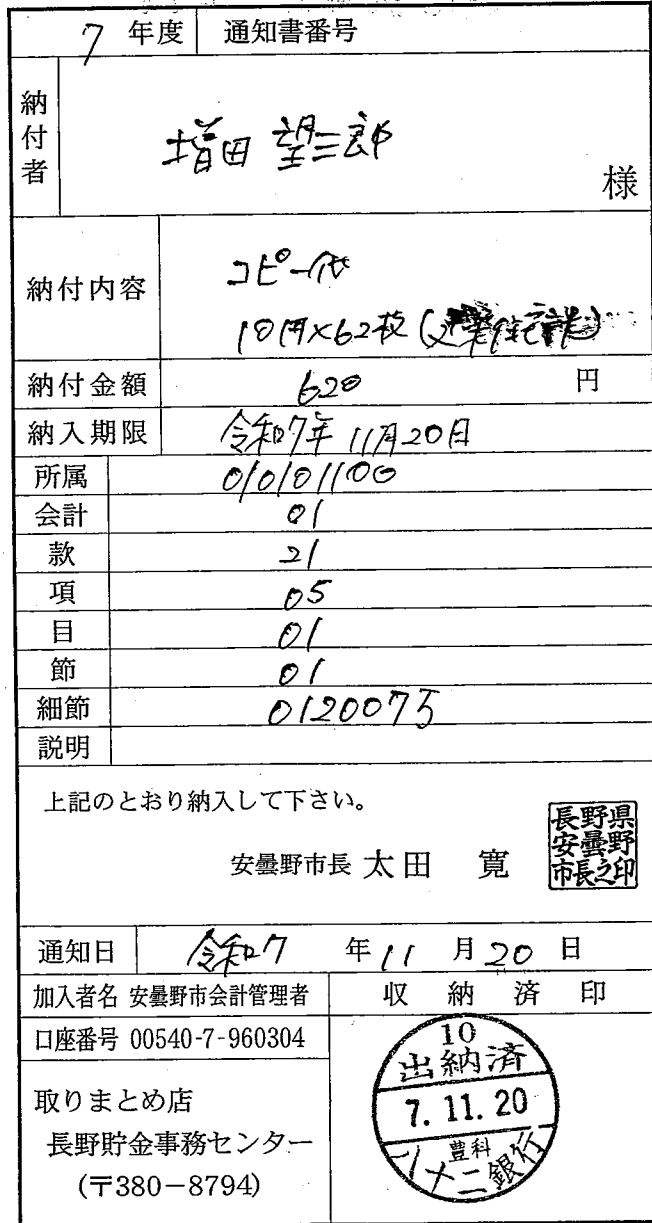 7 年度 通知書番号
納付者 増田 望三郎 様
納付内容 コピー代
10円×62枚
納付金額 620 円
納入期限 令和7年11月20日
所属 010101100
会計 01
款 21
項 05
目 01
節 01
細節 0120075
説明
上記のとおり納入して下さい。
安曇野市長 太田 寛
長野県
安曇野
市長之印
通知日 令和7 年 11 月 20 日
加入者名 安曇野市会計管理者 収納済印
口座番号 00540-7-960304
取りまとめ店
長野貯金事務センター
(〒380-8794)
10
出納済
7. 11. 20
豊科
八十二銀行